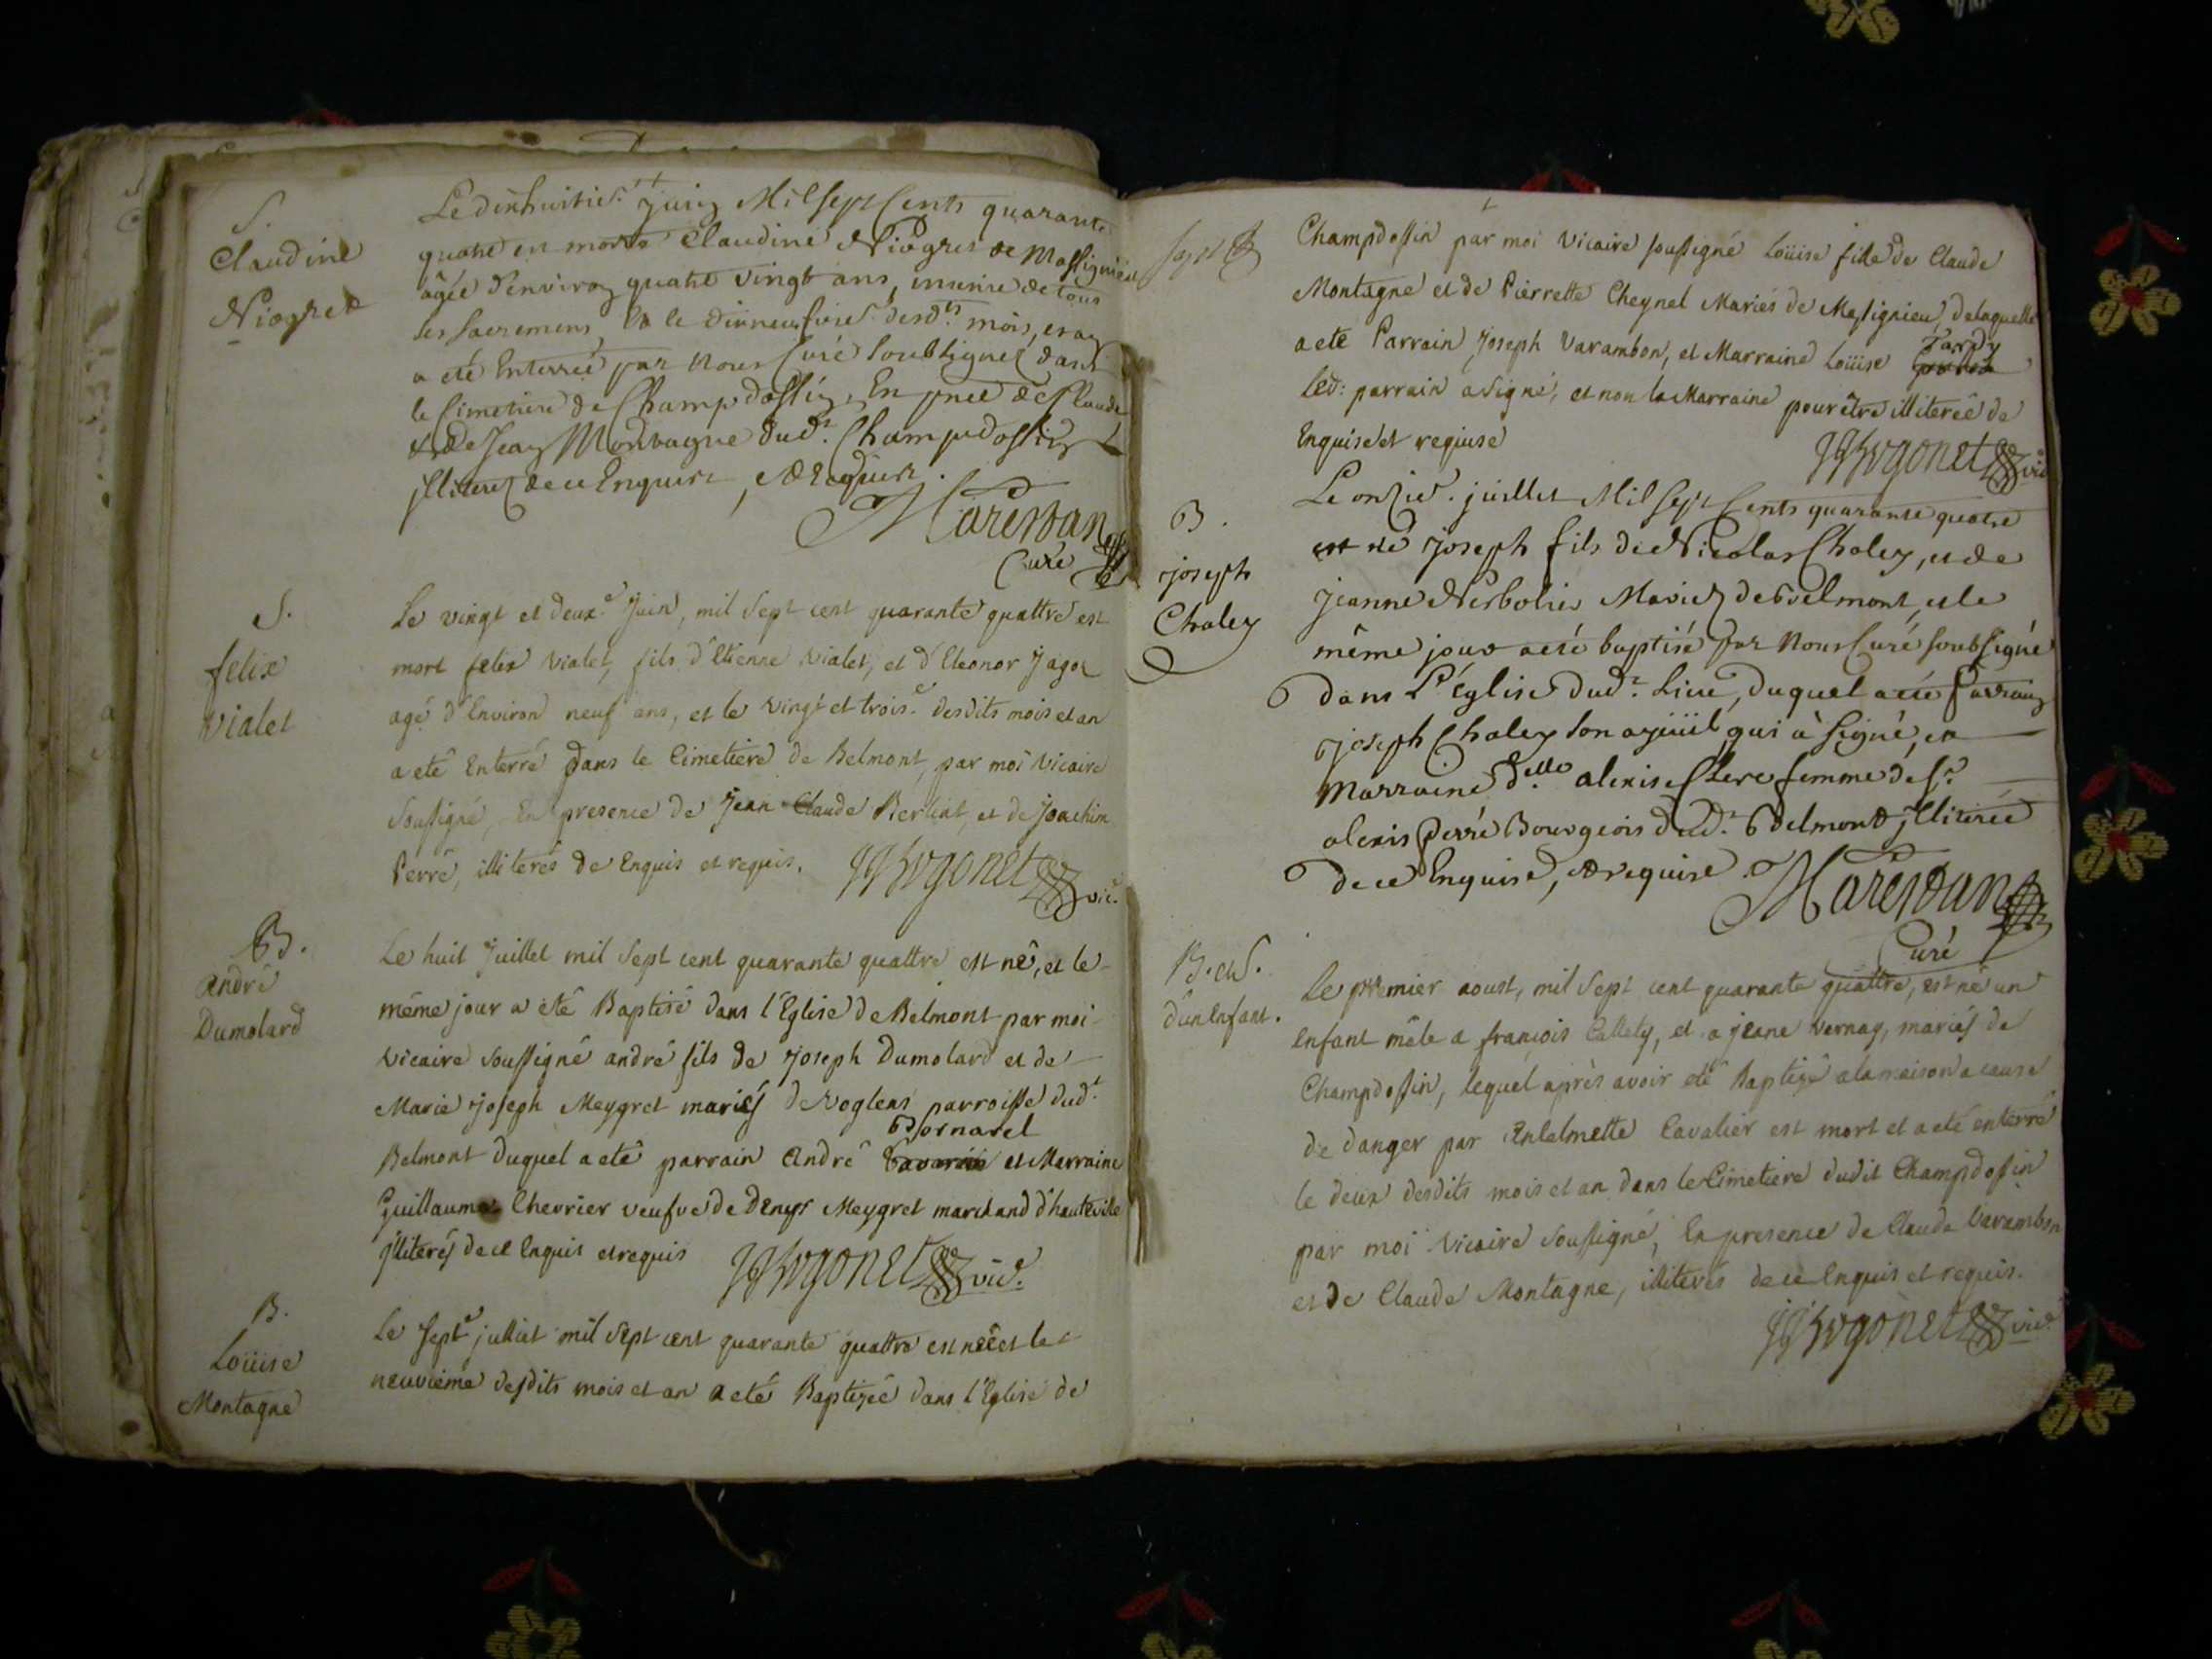 S.
Claudine
Niogret
Le dixhuitie. juin Mil Sept Cents quarante
quatre est morte Claudine Niogret de Massignieu
âgée d'environ quatre vingt ans, munie de tous
les Sacremens, Et le dixneufvie. desd.ts mois, et an
a été Enterrée par Nous Curé Soubsigné dans
le Cimetiere de Champdossin, En pnce de Claude
& de Jean Montagne dud.t Champdossin
illiterez de ce Enquis, & Requis.
Marestan
Curé
S.
felix
Vialet
Le vingt et deux.e Juin, mil Sept cent quarante quattre est
mort felix Vialet, fils d'Etienne Vialet, et d'Eleonor Jagot
agé d'Environ neuf ans, et le vingt et trois.e desdits mois et an
a eté Enterré dans le Cimetiere de Belmont, par moi Vicaire
Soussigné, En presence de Jean Claude Berliat, et de Joachim
Perré, illiterés de Enquis et requis. Hugonet vic.
B.
André
Dumolard
Le huit Juillet mil Sept cent quarante quattre est né, et le
même jour a eté Baptisé dans l'Eglise de Belmont par moi
Vicaire Soussigné andré fils de Joseph Dumolard et de
Marie Joseph Meygret mariés de Vogleas parroisse dud.t
Bornarel
Belmont duquel a eté parrain André et Marraine
Guillauma Chevrier veufve de Denys Meygret marchand d'hauteville
illiterés de ce Enquis et requis Hugonet vic.
B.
Loüise
Montagne
Le Sept.e julliet mil Sept cent quarante quattre est née et le
neuvième desdits mois et an a eté Baptizée dans l'Eglise de
Champdossin par moi Vicaire soussigné Loüise fille de Claude
Montagne et de Pierrette Cheynel Mariés de Massignieu, de laquelle
Tardy
a eté Parrain Joseph Varambon, et Marraine Loüise
led: parrain a signé, et non la Marraine pour être illiterée de
Enquise et requise Hugonet vic
B.
joseph
Chaley
Le onzie. juillet Mil Sept Cents quarante quatre
est né joseph fils de Nicolas Chaley, et de
jeanne Nerbolier Mariez de Belmont, et le
même jour a eté baptisé par Nous Curé soubsigné
dans L'église dud.t Lieu, duquel a eté Parrain
joseph Chaley son ayeüil, qui à signé, et
Marraine d.elle alexis Clerc femme de S.r
alexis Perré Bourgeois dud.t Belmont, illiterée
de ce Enquise, & requise. Marestan
Curé
B. et S.
d'un Enfant.
Le premier aoust, mil Sept cent quarante quattre, est né un
enfant mâle a françois Callety, et a jeane Vernay, mariés de
Champdossin, lequel après avoir eté Baptizé a la maison a cause
de danger par Anselmette Cavalier est mort et a eté enterré
le deux desdits mois et an dans le Cimetiere dudit Champdossin
par moi Vicaire Soussigné, En presence de Claude Varambon
et de Claude Montagne, illiterés de ce Enquis et requis.
Hugonet vic.